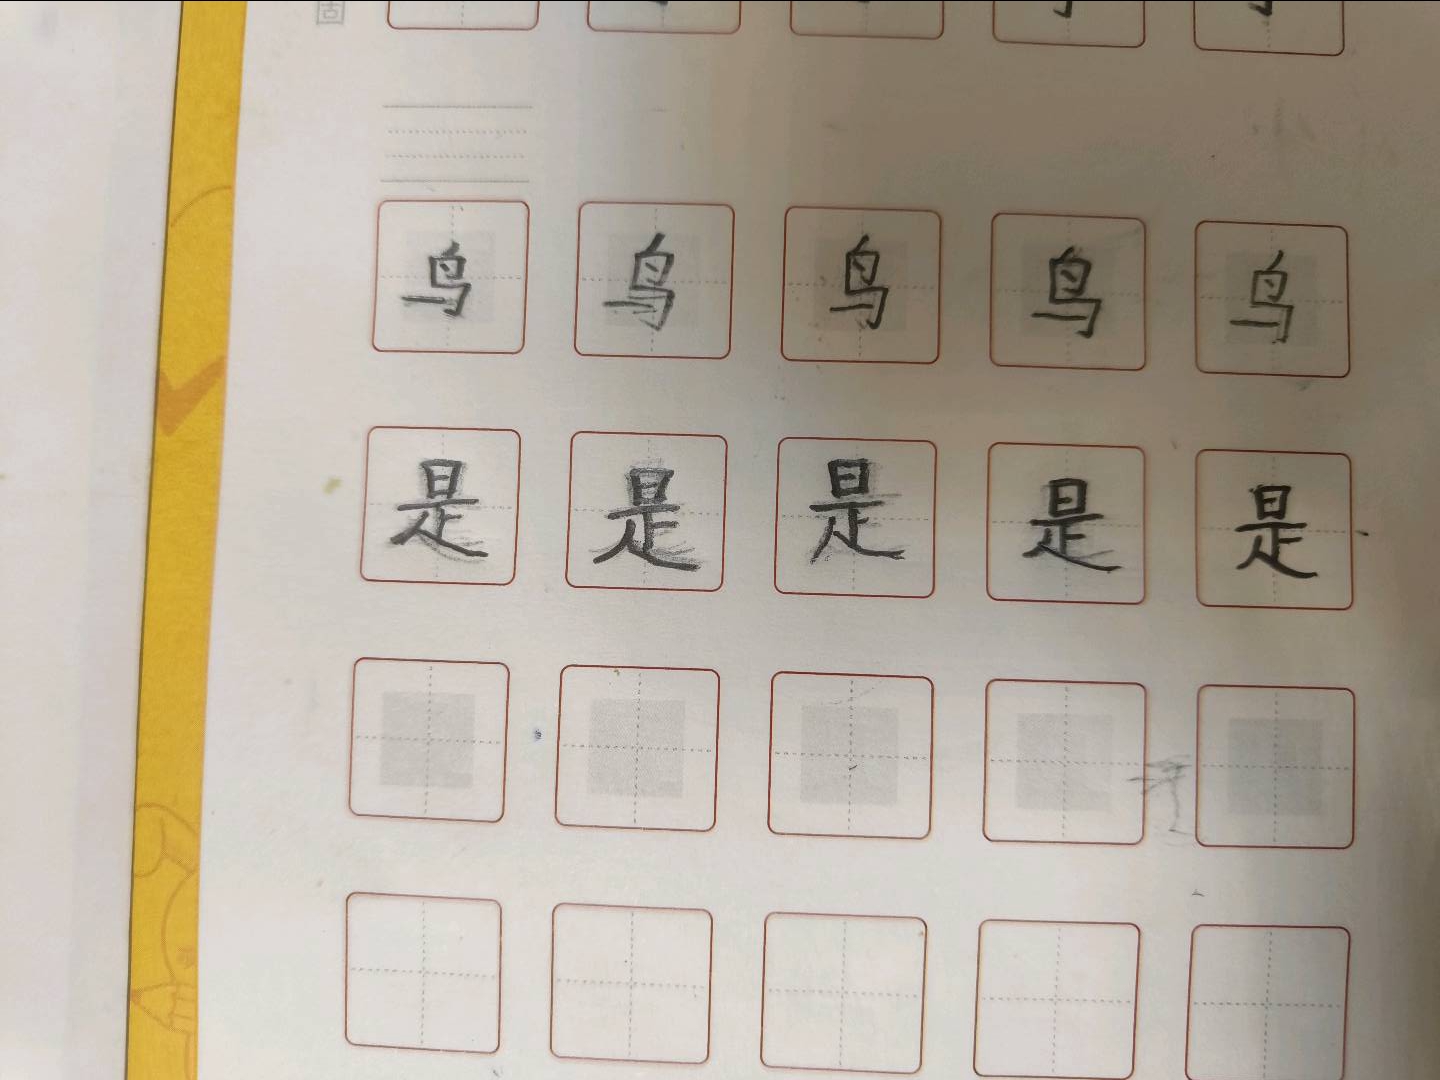 鸟 鸟 鸟 鸟 鸟
是 是 是 是 是